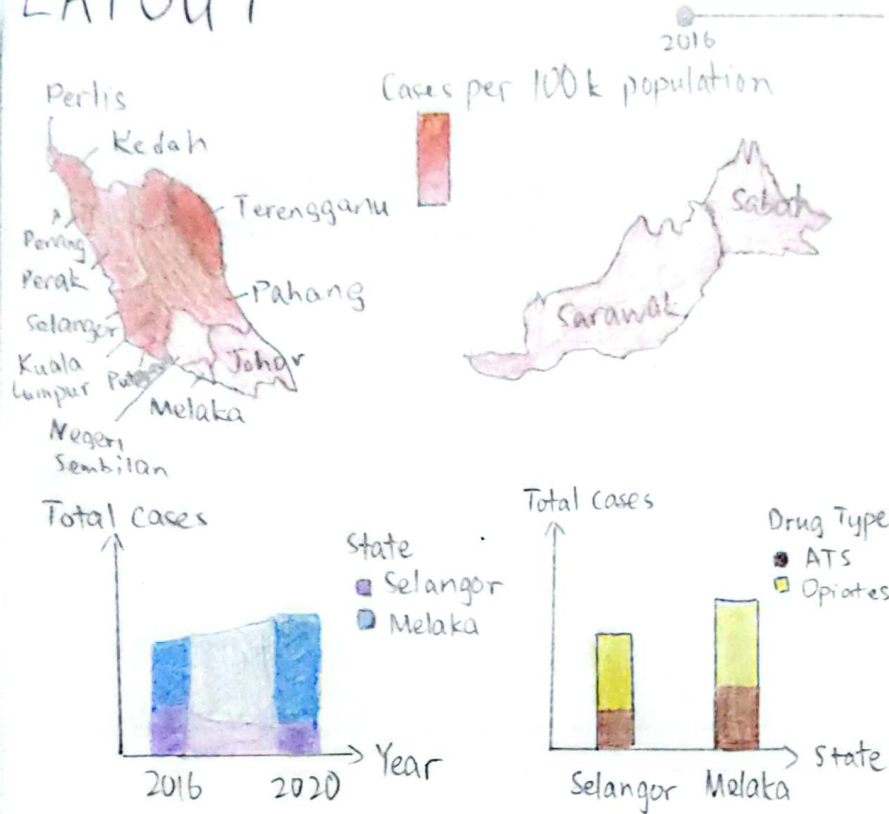 LAYOUT
2016
Cases per 100k population
Perlis
Kedah
Terengganu
Penang
Perak
Pahang
Selangor
Kuala
Lumpur
Johor
Melaka
Negeri
Sembilan
Sabah
Sarawak
Total Cases
State
Selangor
Melaka
2016
2020
Year
Total Cases
Drug Type
ATS
Opiates
Selangor
Melaka
State